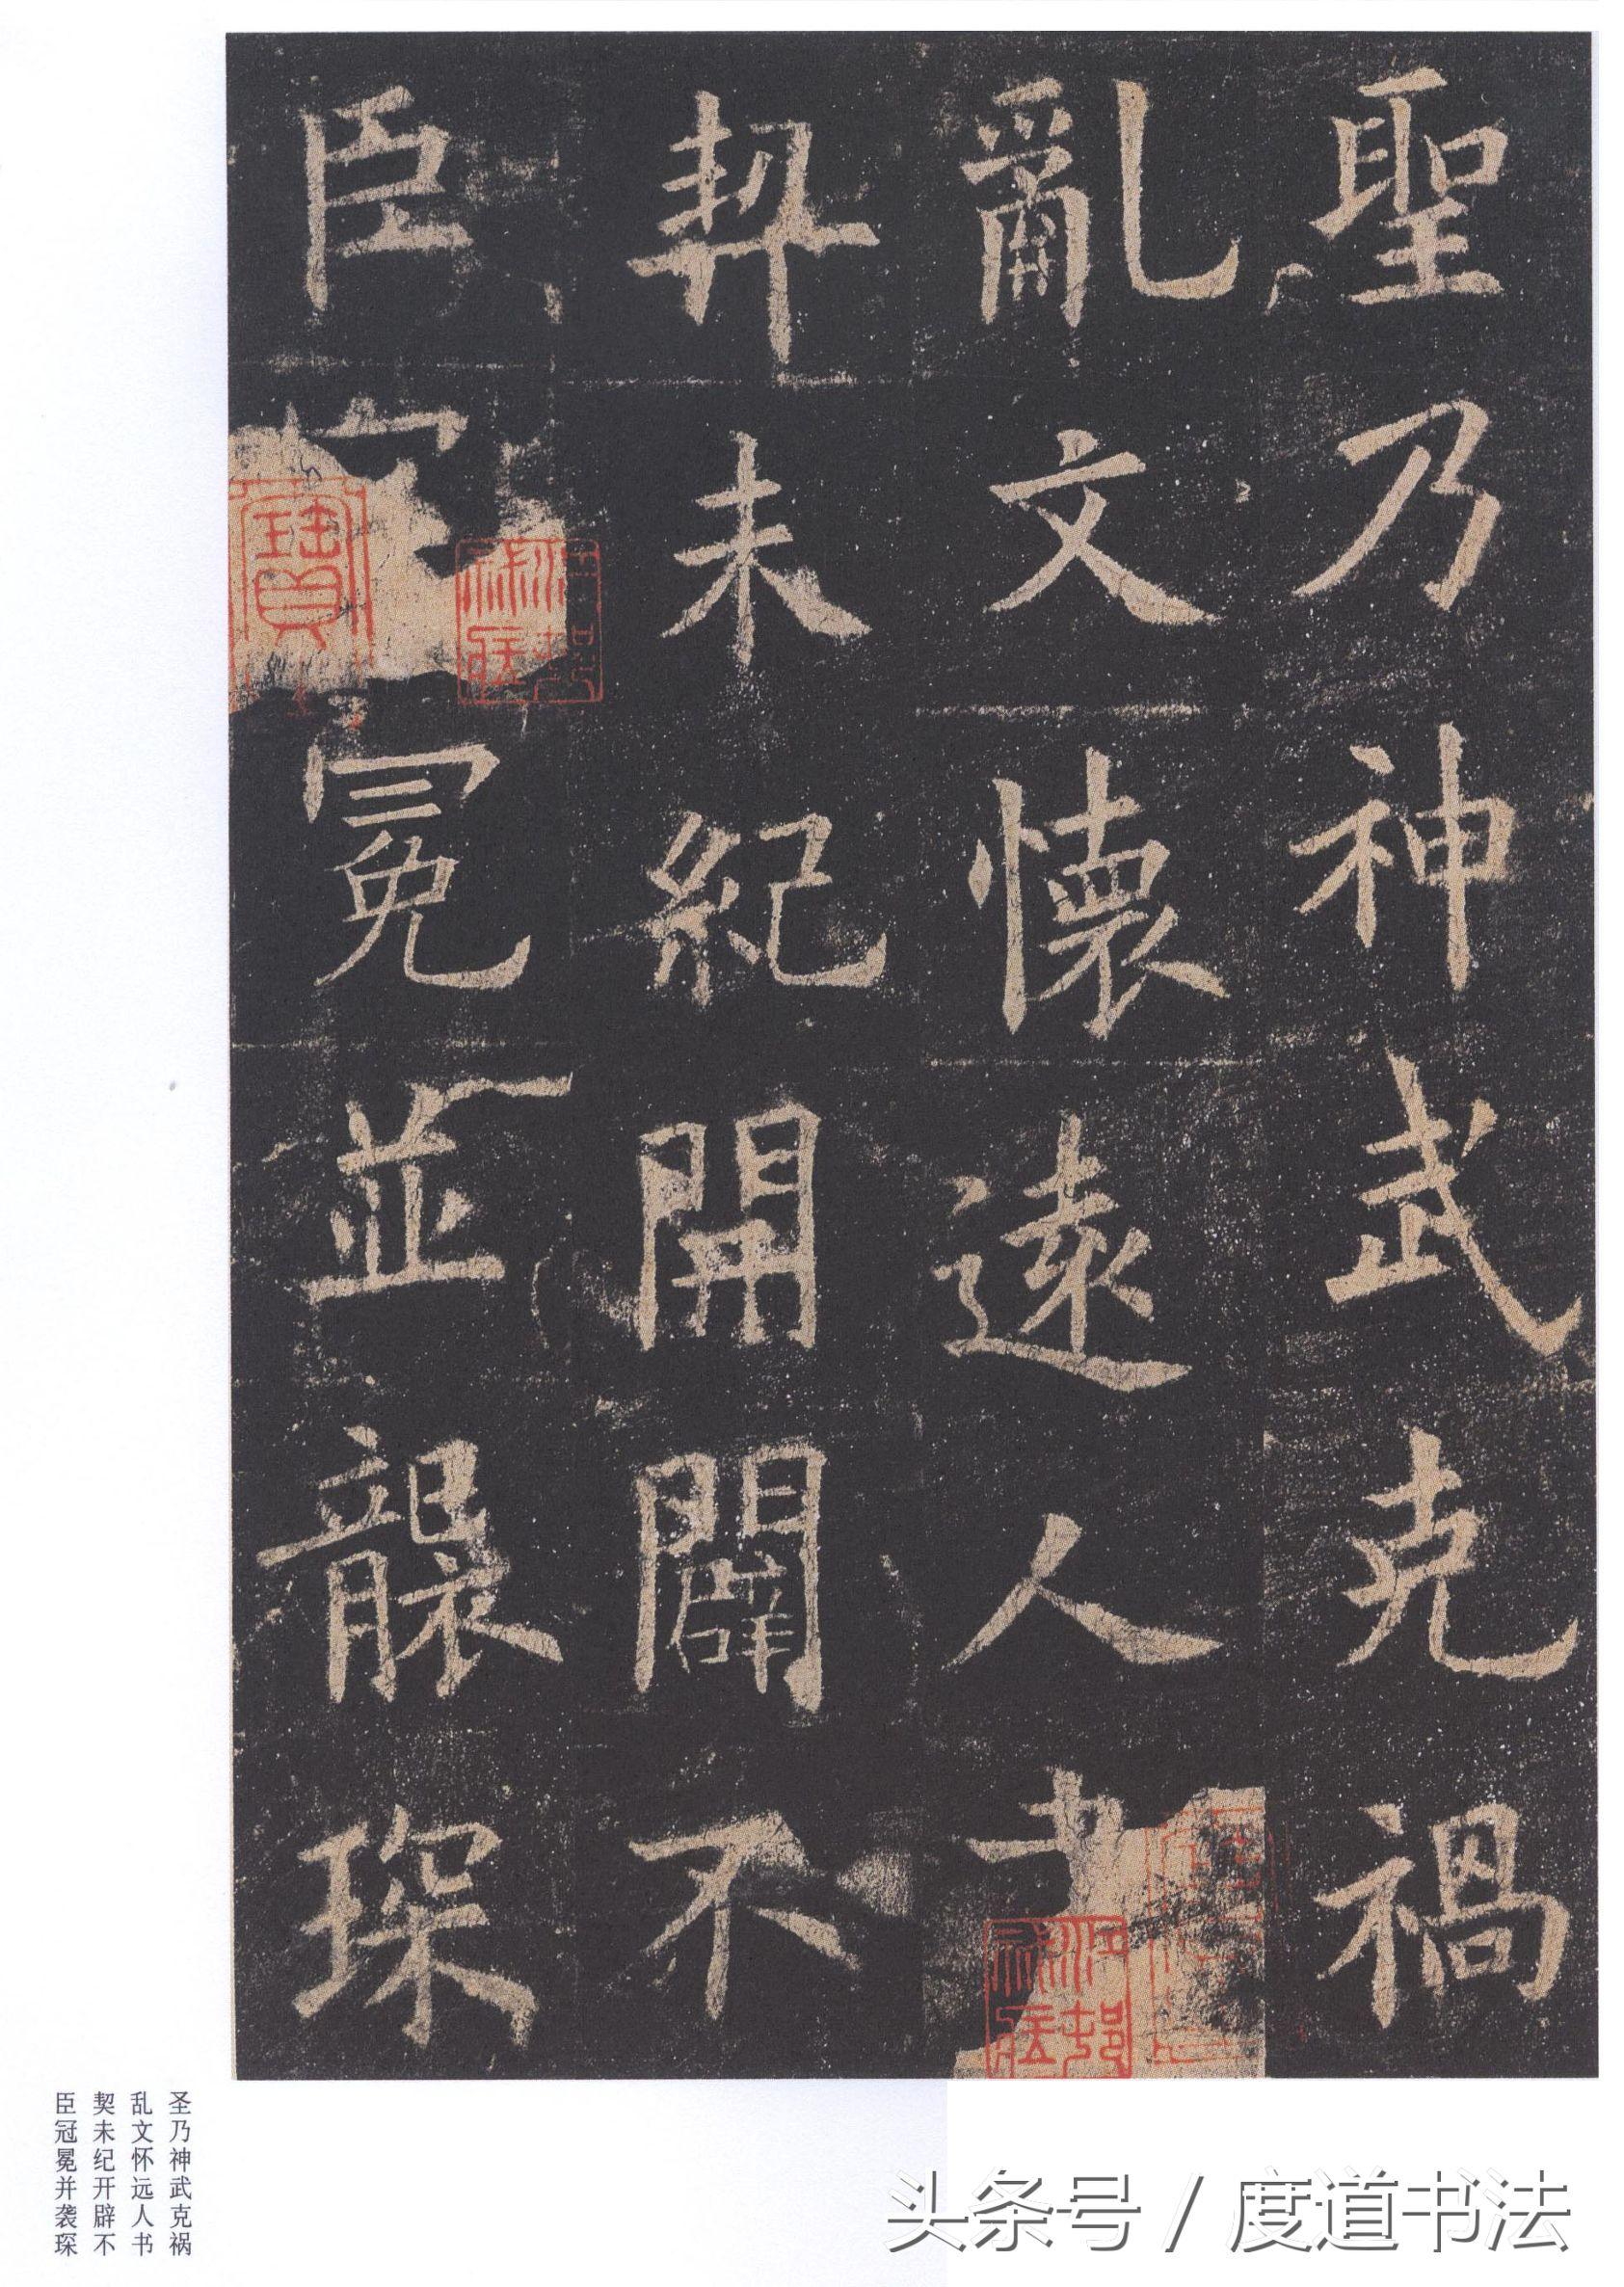 聖乃神武克禍
亂文懷遠人書
契未紀開闢不
臣冠冕並襲琛
圣乃神武克祸
乱文怀远人书
契未纪开辟不
臣冠冕并袭琛
头条号 / 度道书法